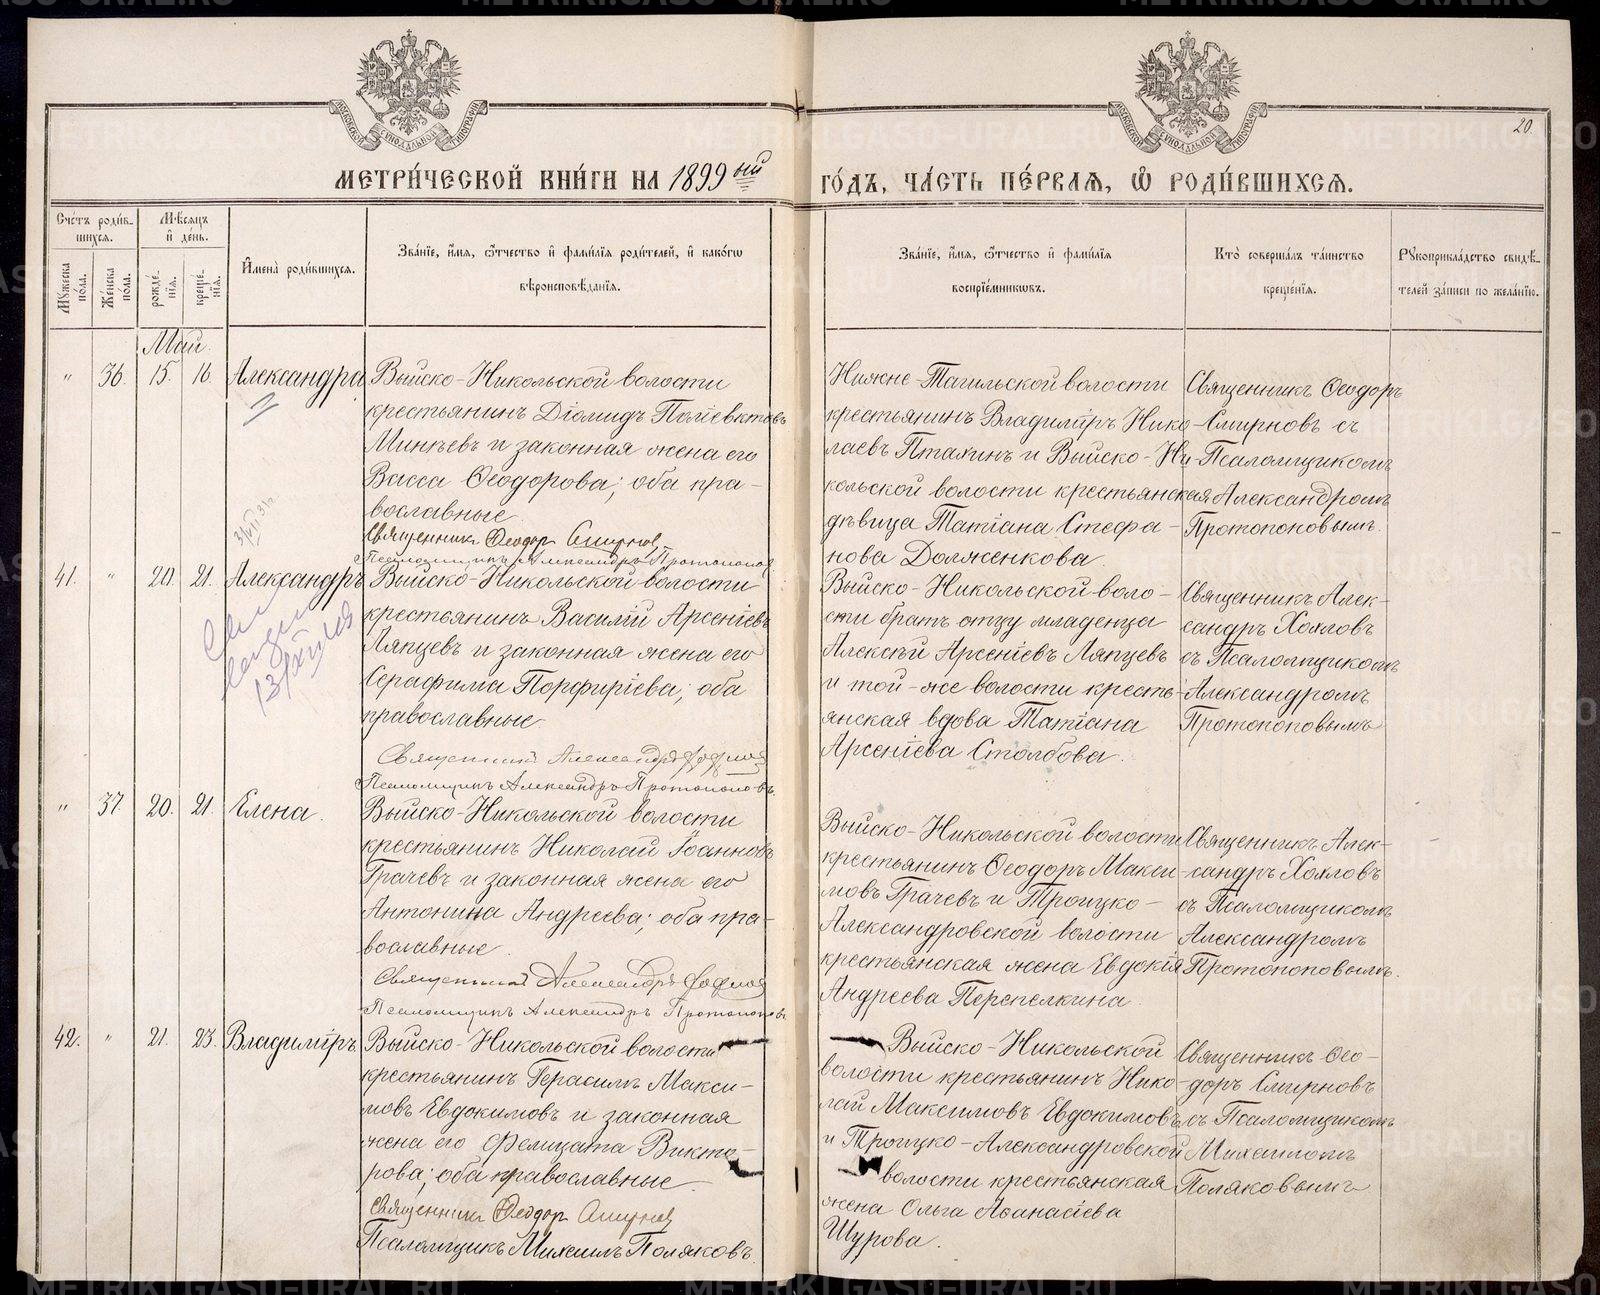 20
МОСКОВСКОЙ СѴНОДАЛЬНОЙ ТИПОГРАФІИ
МОСКОВСКОЙ СѴНОДАЛЬНОЙ ТИПОГРАФІИ
МЕТРИ́ЧЕСКОЙ КНИ́ГИ НА 1899 ый
ГО́ДЪ, ЧА́СТЬ ПЕ́РВАЯ, Ѡ҆ РОДИ́ВШИХСЯ.
Сче́тъ роди́в-
шихся.
Мѣ́сяцъ
и҆ де́нь.
Мꙋ́жеска по́ла.
Же́нска по́ла.
рожде́-нїя.
креще́-нїя.
И҆мена̀ роди́вшихся.
Зва́нїе, и҆́мя, ѻ҆́тчество и҆ фами́лїѧ роди́телей, и҆ како́гѡ
вѣроисповѣ́данїя.
Зва́нїе, и҆́мя, ѻ҆́тчество и҆ фами́лїѧ
воспрїе́мниковъ.
Кто̀ соверша́лъ та́инство
креще́нїя.
Рꙋкоприкла́дство свидѣ́-
телей за́писи по жела́нїю.
Май.
" 36. 15. 16. Александра
Выйско-Никольской волости
крестьянинъ Діомидъ Поліевктовъ
Минѣевъ и законная жена его
Васса Ѳеодорова; оба пра-
вославные
Священникъ Ѳеодоръ Смирновъ
Псаломщикъ Александръ Протопоповъ
Нижне-Тагильской волости
крестьянинъ Владиміръ Нико-
лаевъ Птахинъ и Выйско-Ни-
кольской волости крестьянская
дѣвица Татіана Стефа-
нова Долженкова
Священникъ Ѳеодоръ
Смирновъ съ
Псаломщикомъ
Александромъ
Протопоповымъ.
41. " 20. 21. Александръ
Выйско-Никольской волости
крестьянинъ Василій Арсеніевъ
Ляпцевъ и законная жена его
Серафима Порфиріева; оба
православные
Священникъ Александръ Хохловъ
Псаломщикъ Александръ Протопоповъ.
Выйско-Никольской воло-
сти братъ отцу младенца
Алексѣй Арсеніевъ Ляпцевъ
и той-же волости кресть-
янская вдова Татіана
Арсеніева Столбова.
Священникъ Алек-
сандръ Хохловъ
съ Псаломщикомъ
Александромъ
Протопоповымъ
" 37 20. 21. Елена.
Выйско-Никольской волости
крестьянинъ Николай Іоанновъ
Грачевъ и законная жена его
Антонина Андреева; оба пра-
вославные
Священникъ Александръ Хохловъ
Псаломщикъ Александръ Протопоповъ
Выйско-Никольской волости
крестьянинъ Ѳеодоръ Макси-
мовъ Грачевъ и Троицко-
Александровской волости
крестьянская жена Евдокія
Андреева Перепелкина.
Священникъ Алек-
сандръ Хохловъ
съ Псаломщикомъ
Александромъ
Протопоповымъ.
42. " 21. 23. Владиміръ
Выйско-Никольской волости
крестьянинъ Герасимъ Макси-
мовъ Евдокимовъ и законная
жена его Фелицата Викто-
рова; оба православные
Священникъ Ѳеодоръ Смирновъ
Псаломщикъ Михаилъ Поляковъ
Выйско-Никольской
волости крестьянинъ Нико-
лай Максимовъ Евдокимовъ
и Троицко-Александровской
волости крестьянская
жена Ольга Аѳанасіева
Щурова.
Священникъ Ѳео-
доръ Смирновъ
съ Псаломщикомъ
Михаиломъ
Поляковымъ
METRIKI.GASO-URAL.RU